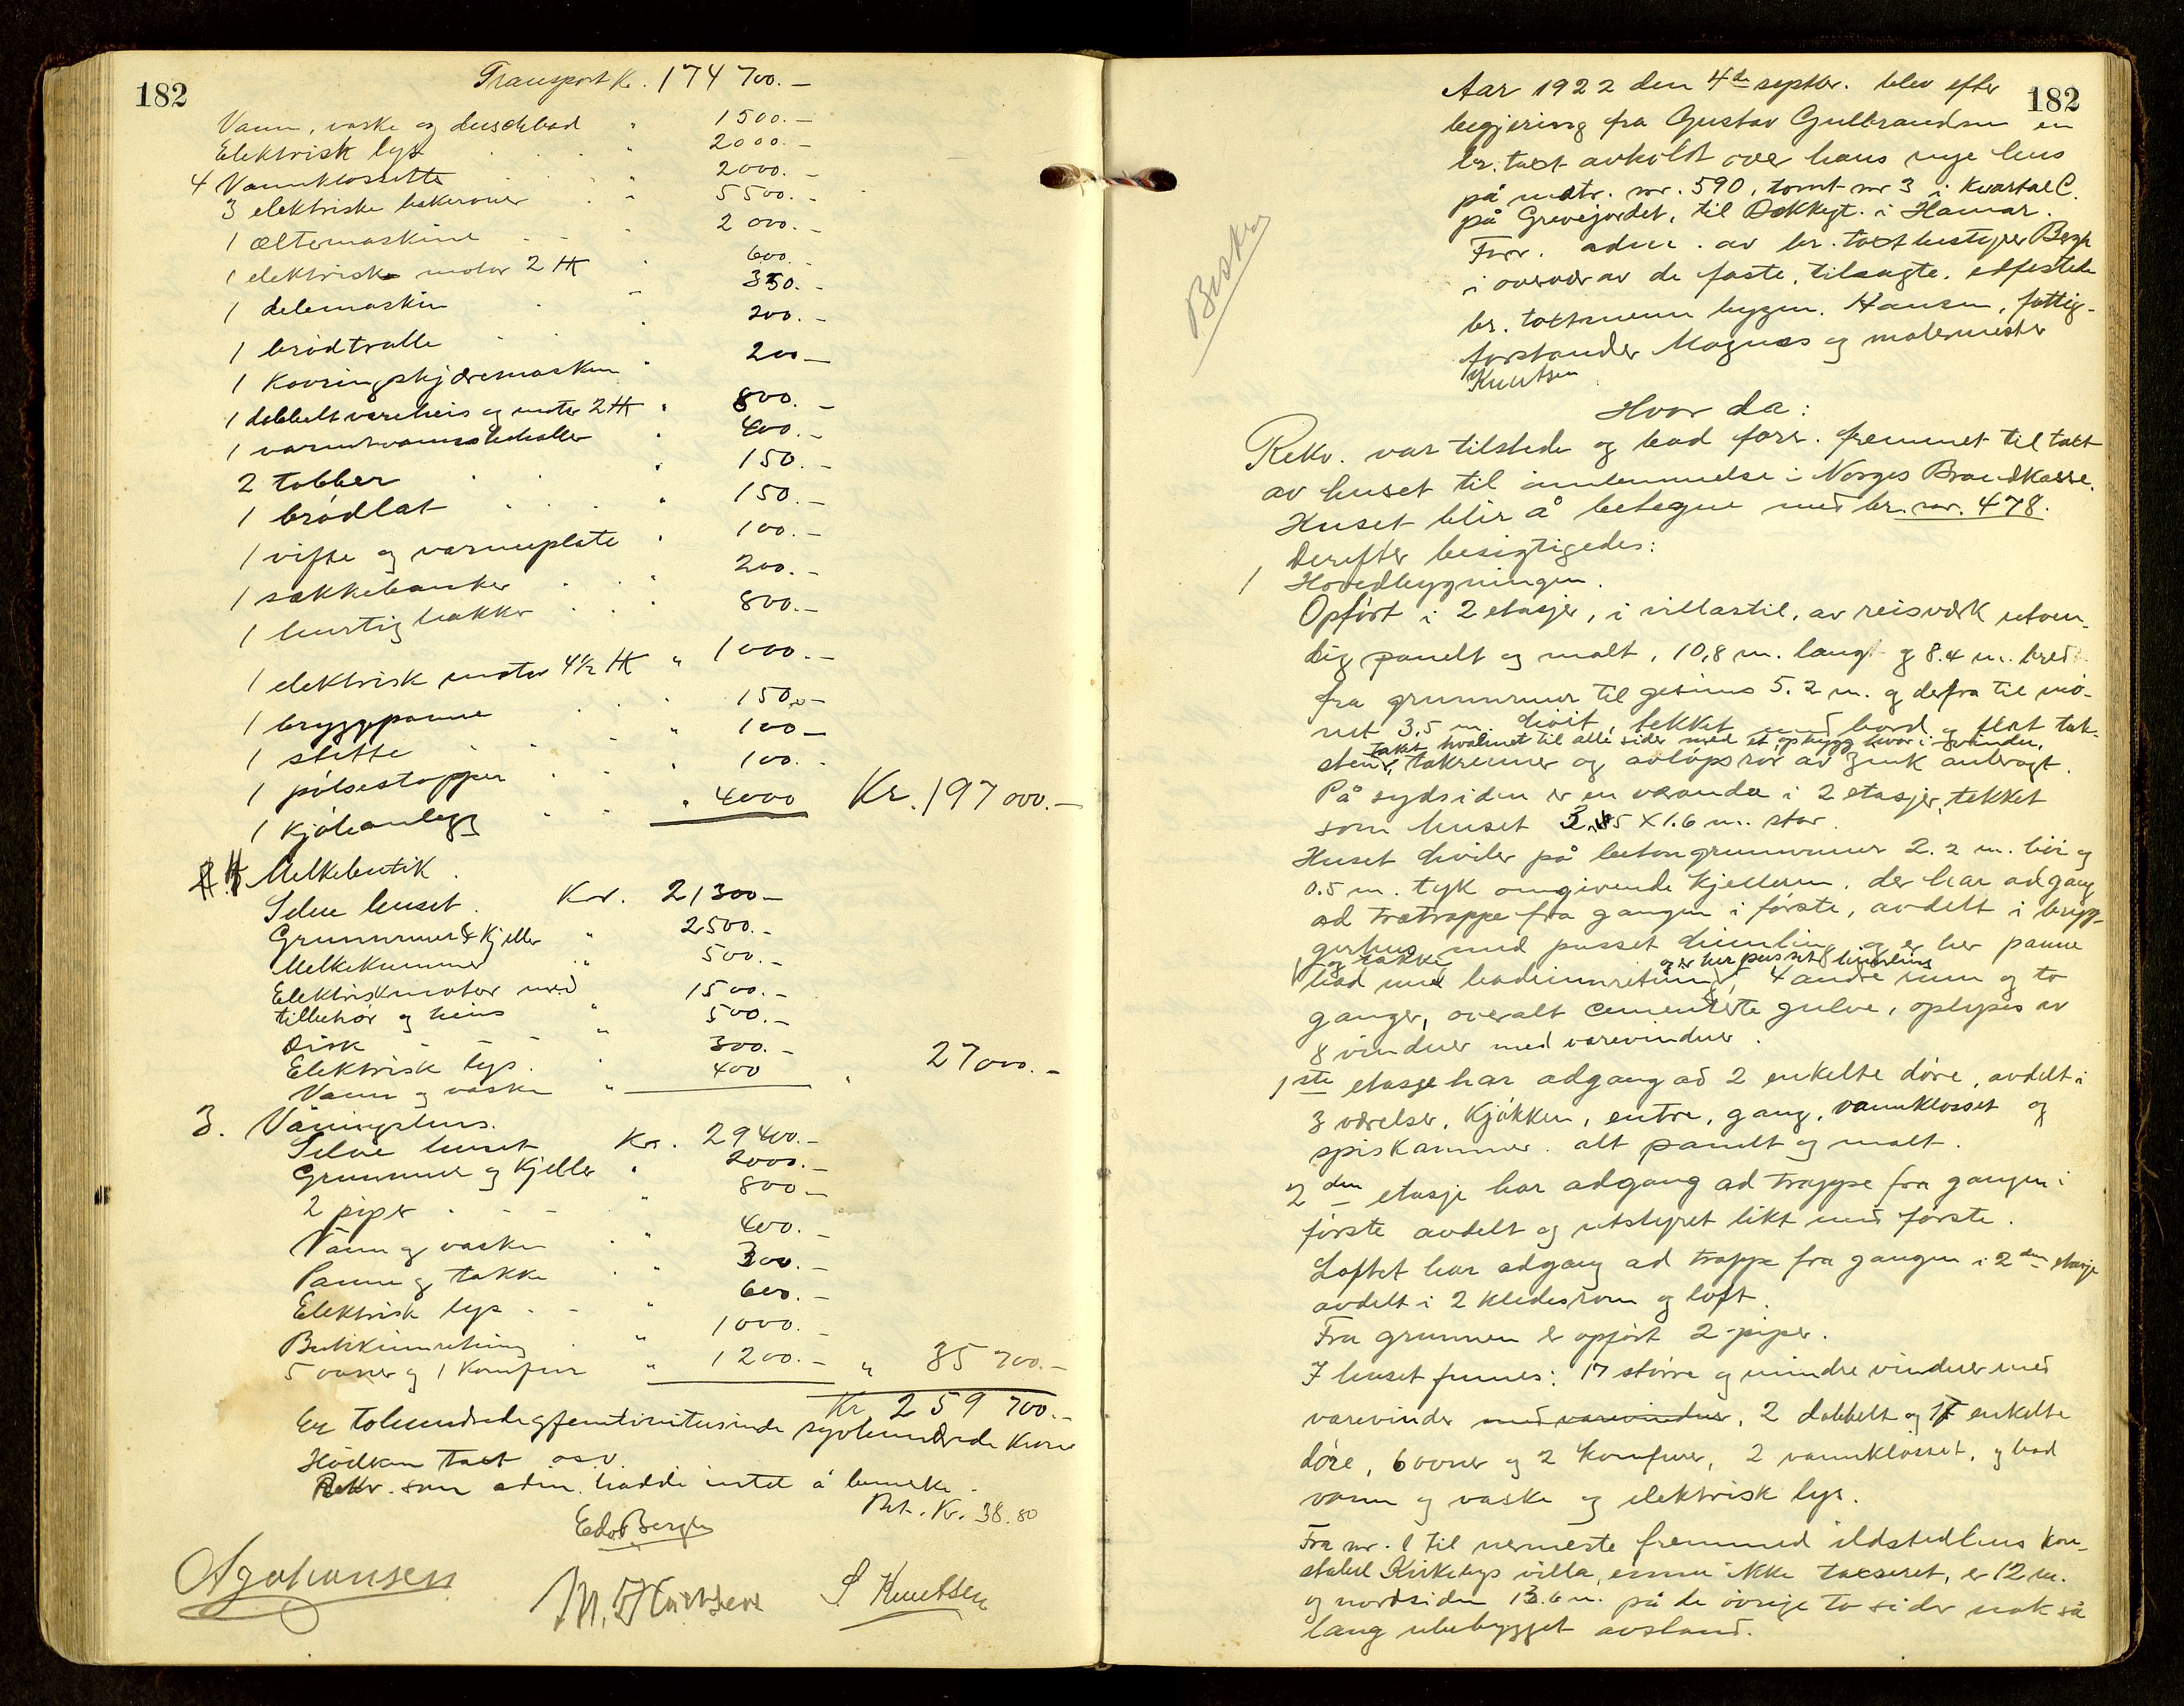 182
Transport Kr. 174 700.-
Vann, vaske og duschbad " 1500.-
Elektrisk lys " 2000.-
4 Vannklossette " 2000.-
3 elektriske bakerovner " 5500.-
1 æltemaskine " 2000.-
1 elektrisk motor 2 HK " 600.-
1 delemaskin " 350.-
1 brødtralle " 200.-
1 Kavringskjæremaskin " 200.-
1 dobbelt vareheis og motor 2 HK " 800.-
1 varmtvannsbeholder " 400.-
2 tobber " 150.-
1 brødlat " 150.-
1 vifte og varmeplate " 100.-
1 sækkebanker " 200.-
1 hurtighakker " 800.-
1 elektrisk motor 4½ HK " 1000.-
1 bryggepanne " 150.-
1 støtte " 100.-
1 pølsestopper " 100.-
1 kjøleanlegg " 4000 Kr. 197000.-
Melkebutik.
Selve huset. Kr. 21300.-
Grunnmur & Kjeller " 2500.-
Melkekummer " 500.-
Elektriskmotor med
tilbehør og heis " 1500.-
Disk " 500.-
Elektrisk lys. " 300.-
Vann og vaske " 400 " 27000.-
3. Våningshus.
Selve huset Kr. 29400.-
Grunnmur og Kjeller " 2000.-
2 piper " 800.-
Vann og vaske " 400.-
Panne og takke " 300.-
Elektrisk lys " 600.-
Butikkinnretning " 1000.-
5 ovner og 1 Komfur " 1200.- " 35700.-
Kr 259 700.-
Er tohundredeogfemtinitusinde syvhundrede Kroner
Hvilken taxt osv.
Rekv. som adm. hadde intet å bemerke.
Bet. Kr. 38.80
Edv Bergh
A Johansen M. Hansen S Knutsen
182
Aar 1922 den 4de septbr. blev efter
begjering fra Gustav Gulbrandsen en
br. taxt avholdt over hans nye hus
på matr. nr. 590, tomt nr 3 i Kvartal C.
på Grevejordet, til Dækkegt. i Hamar.
Forr. adm. av br. taxtbestyrer Bergh
i overvær av de faste, tilsagte, edfestede
br. taxtmenn bygm. Hansen, fattig-
forstander Magnus og malermester
Knutsen
Hvor da:
Rekv. var tilstede og bad forr. fremmet til taxt
av huset til innlemmelse i Norges Brandkasse.
Huset blir å betegne med br. nr. 478.
Derefter besigtigedes:
1 Hovedbygningen.
Opført i 2 etasjer, i villastil, av reisverk utven-
dig panelt og malt, 10,8 m. langt og 8.4 m. bredt.
fra grunnmur til gesims 5.2 m. og derfra til mø-
net 3,5 m. høit, tekket med bord og flat tak-
taket hvalmet til alle sider med et opbygg hvori 3 vinduer,
sten, takrenner og avløpsrør av zink anbragt.
På sydsiden er en veranda i 2 etasjer, tekket
som huset 3,45 X 1.6 m. stor.
Huset hviler på betongrunnmur 2.2 m. høi og
0.5 m. tyk omgivende kjelleren, der har adgang
ad trætrappe fra gangen i første, avdelt i bryg-
gerhus med pusset himling og er her panne
og takke, og er her pusset himling
bad med badeinnretning, 4 andre rum og to
ganger, overalt cementerte gulve, oplyses av
8 vinduer med varevinduer.
1ste etasje har adgang ad 2 enkelte døre, avdelt i
3 værelser, Kjøkken, entre, gang, vannklosset og
spiskammer. alt panelt og malt.
2den etasje har adgang ad trappe fra gangen i
første avdelt og utstyret likt med første.
Loftet har adgang ad trappe fra gangen i 2den etasje
avdelt i 2 kledesrom og loft.
Fra grunnen er opført 2 piper.
I huset finnes: 17 større og mindre vinduer med
varevinder med varevinduer, 2 dobbelt og 17 enkelte
døre, 6 ovner og 2 komfurer, 2 vannklosset, og bad
vann og vaske og elektrisk lys.
Fra nr. 1 til nermeste fremmed ildstedhus kon-
stabel Kirkebys villa, ennu ikke taxseret, er 12 m.
og nordsiden 13.6 m. på de øvrige to sider nok så
lang ubebygget avstand.